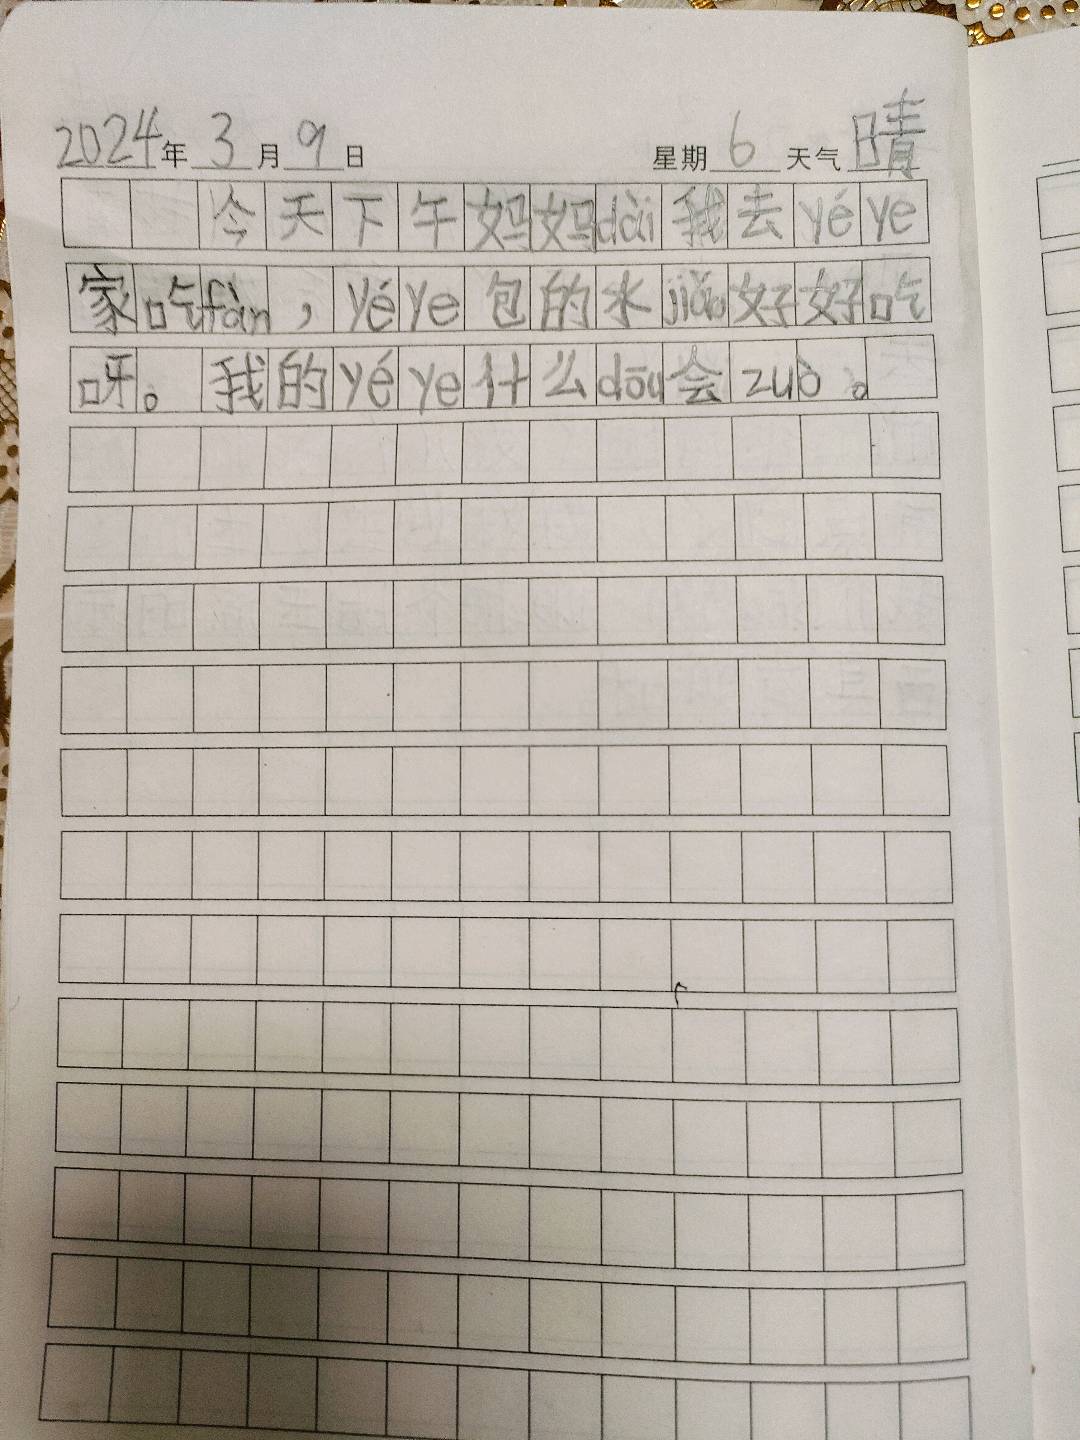 2024年3月9日 星期6 天气晴
今天下午妈妈dài我去yéye
家吃fàn，yéye包的水jiǎo好好吃
呀。我的yéye什么dōu会zuò。